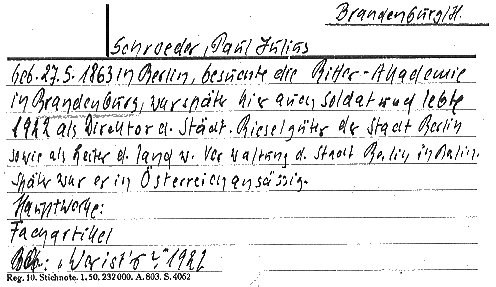 Brandenburg/H.
Schroeder, Paul Julius
geb. 27.5.1863 in Berlin, besuchte die Ritter-Akademie
in Brandenburg, war später hier auch Soldat und lebte
1922 als Direktor d. Städt. Rieselgüter der Stadt Berlin
sowie als Leiter d. landw. Verwaltung d. Stadt Berlin in Berlin.
Später war er in Österreich ansässig.
Hauptwerke:
Fachartikel
: „Wer ist's?" 1922
Reg. 10. Stichnote. 1. 50, 232000. A. 803. S. 4062